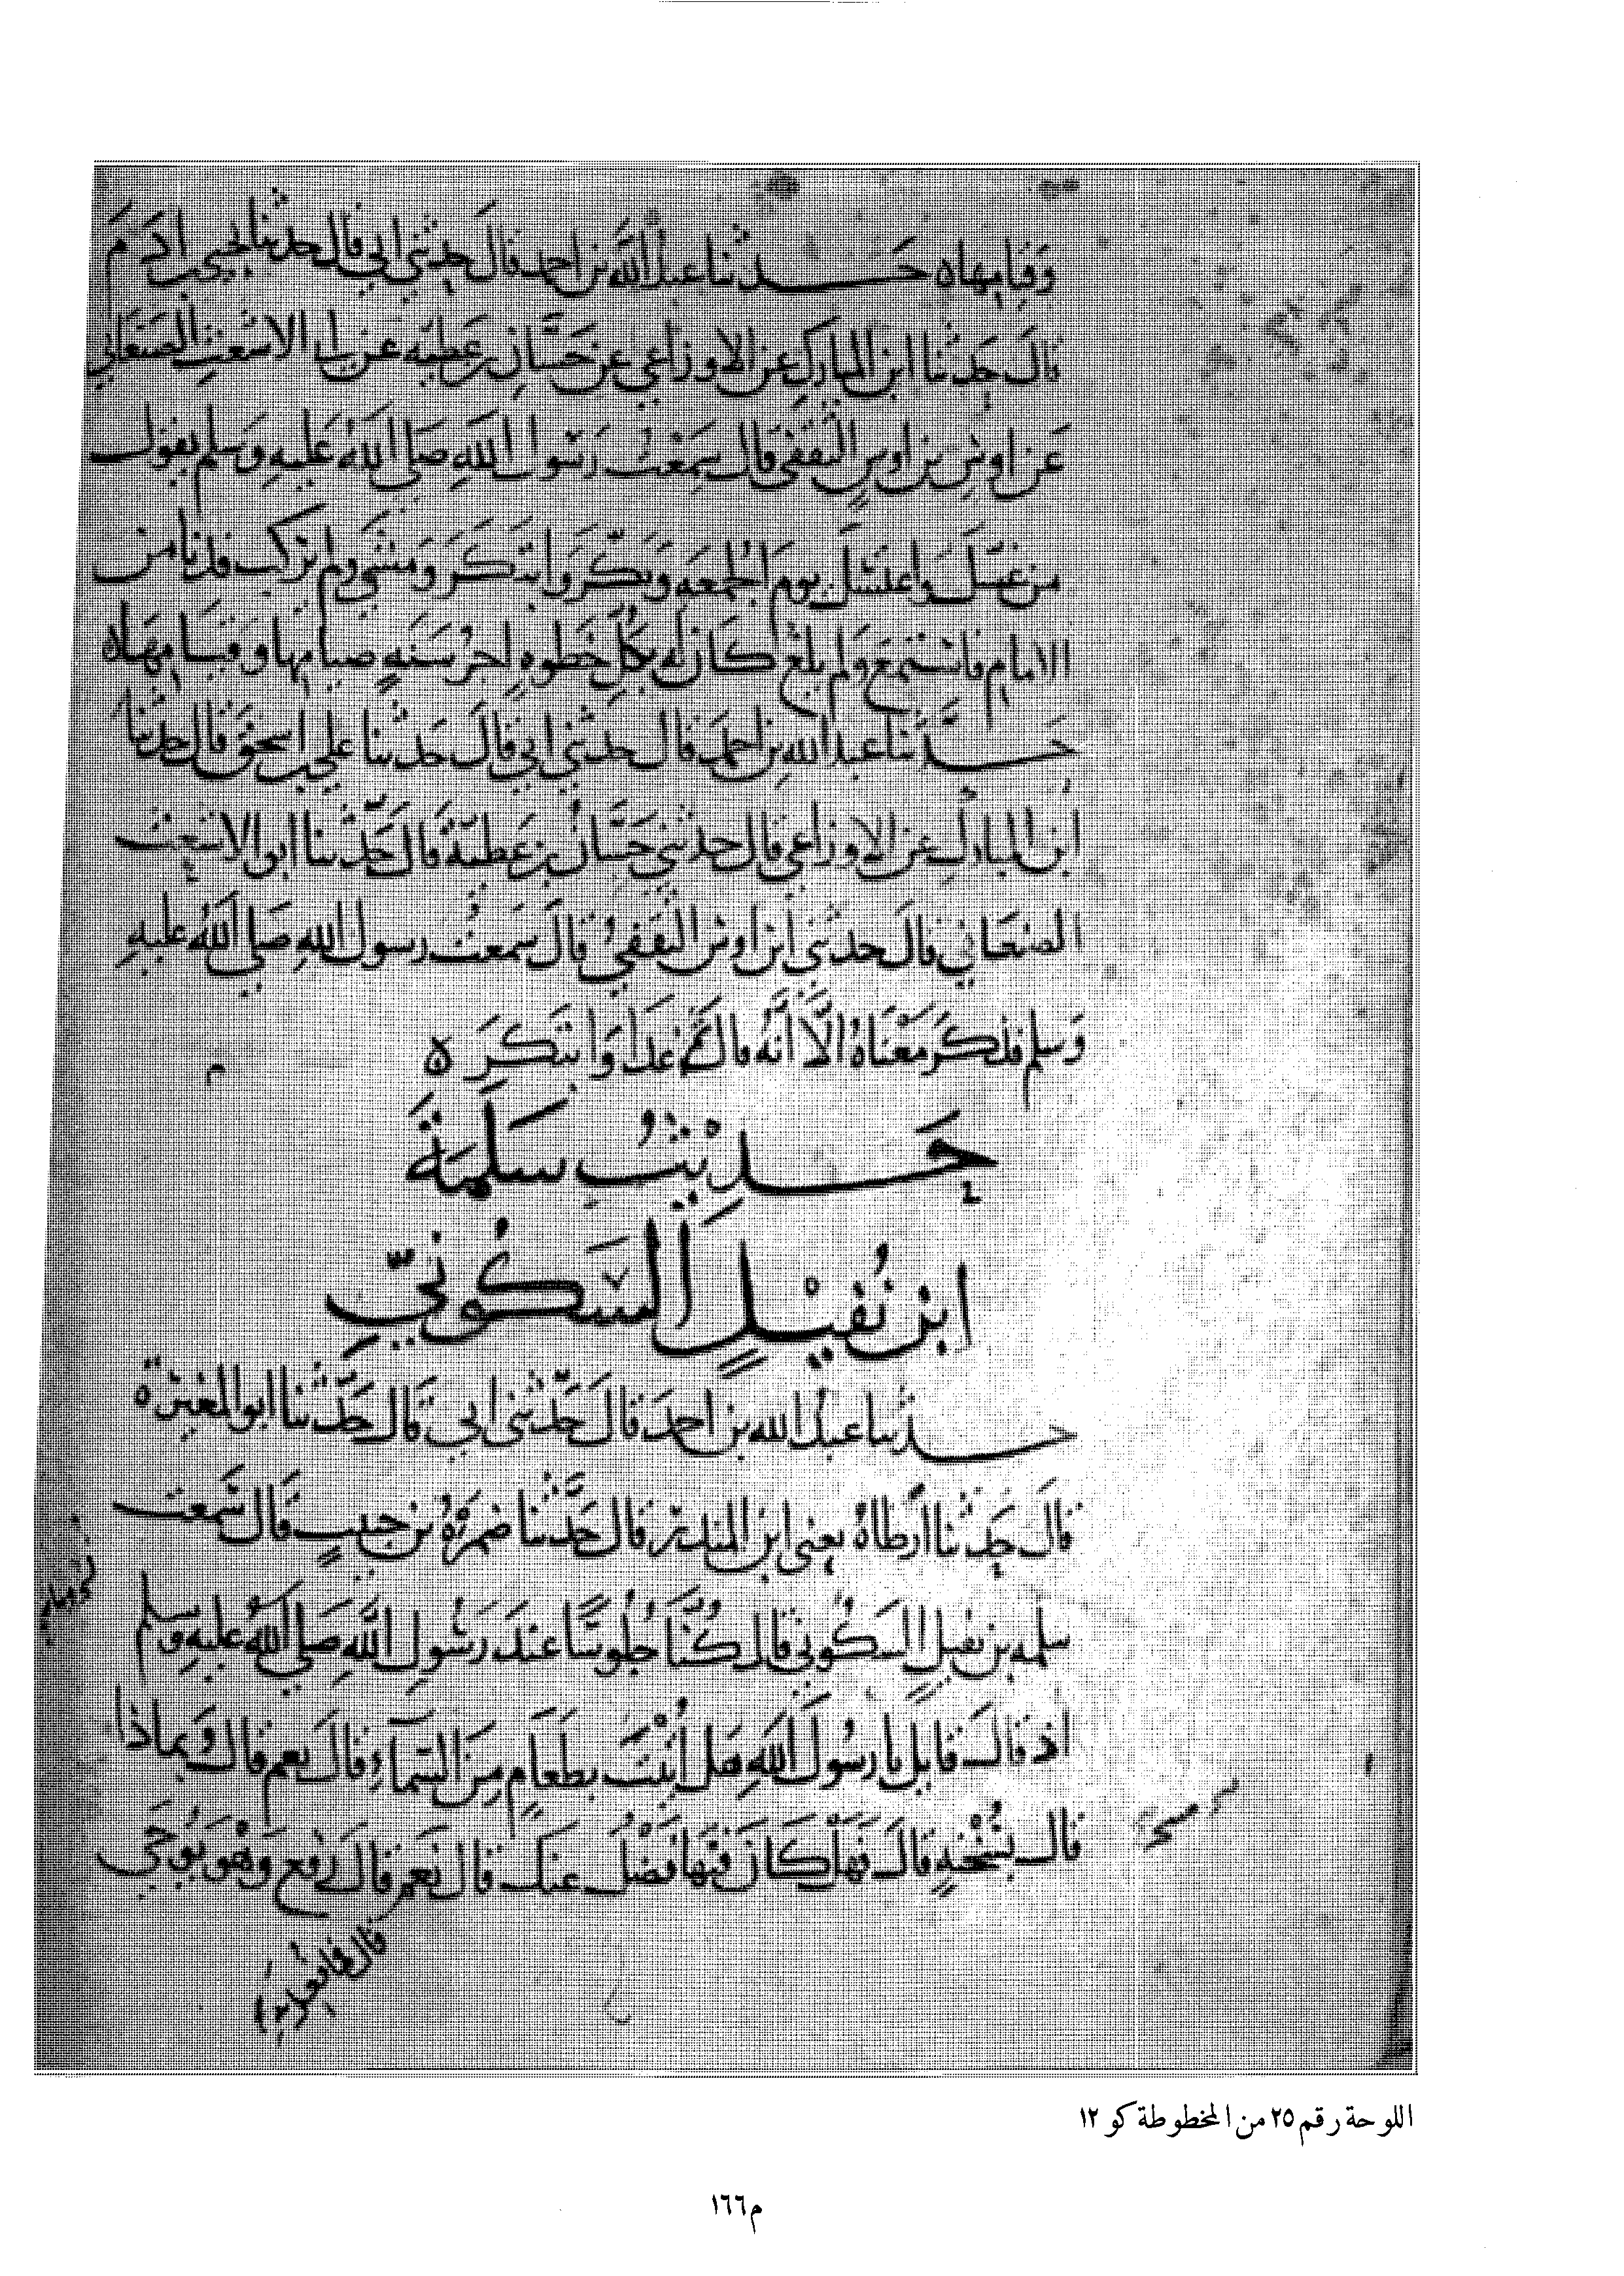 وقيامها ه حدثنا عبد الله بن احمد قال حدثني ابي قال حدثنا يحيى بن ادم
قال حدثنا ابن المبارك عن الاوزاعي عن حسان بن عطيه عن ابي الاشعث الصنعاني
عن اوس بن اوس الثقفي قال سمعت رسول الله صلى الله عليه وسلم يقول
من غسل واغتسل يوم الجمعه وبكر وابتكر ومشى ولم يركب فدنا من
الامام فاستمع ولم يلغ كان له بكل خطوه اجر سنه صيامها وقيامها ه
حدثنا عبد الله بن احمد قال حدثني ابي قال حدثنا علي بن اسحق قال حدثنا
ابن المبارك عن الاوزاعي قال حدثني حسان بن عطية قال حدثنا ابو الاشعث
الصنعاني قال حدثني ابن اوس الثقفي قال سمعت رسول الله صلى الله عليه
وسلم فذكر معناه الا انه قال ثم غدا وابتكر ه
حديث سلمة
ابن نفيل السكوني
حدثنا عبد الله بن احمد قال حدثني ابي قال حدثنا ابو المغيرة
قال حدثنا ارطاه يعني ابن المنذر قال حدثنا ضمره بن حبيب قال سمعت
سلمه بن نفيل السكوني قال كنا جلوسا عند رسول الله صلى الله عليه وسلم
اذ قال قايل يا رسول الله هل اتيت بطعام من السماء قال نعم قال وبماذا
قال بسخنه قال فهل كان فيها فضل عنك قال نعم قال رفع وهو يوحى
قال فما فعل به
اللوحة رقم ٢٥ من المخطوطة كو ١٢
م١٦٦